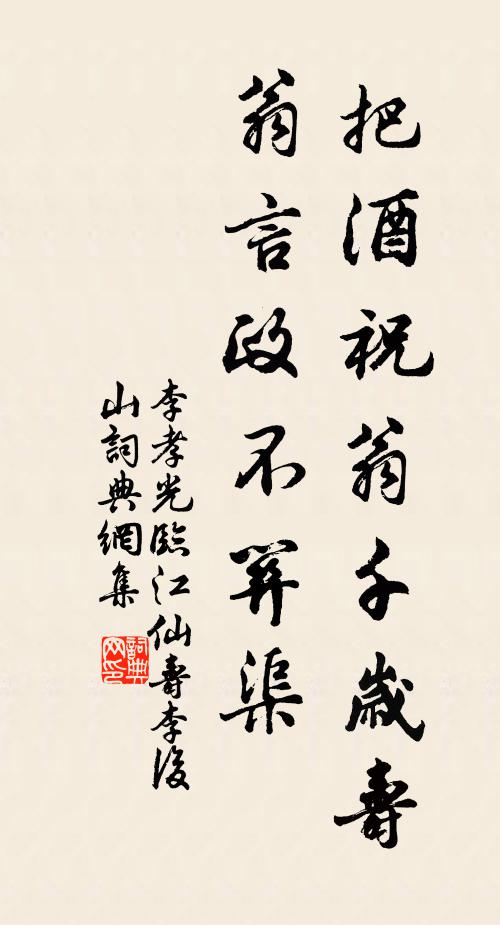 把酒祝翁千歲壽
翁言政不關渠
李孝光臨江仙壽李後
山詞典網集
詞典
網印